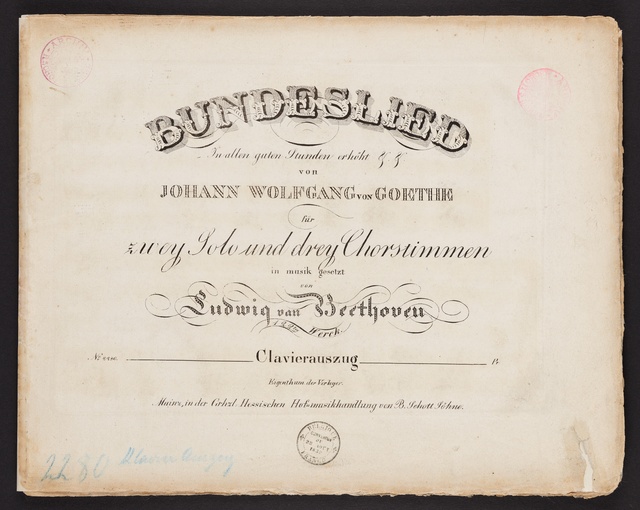 BUNDESLIED
In allen guten Stunden erhöht
von
JOHANN WOLFGANG VON GOETHE
für
zwey Solo und drey Chorstimmen
in musik gesetzt
von
Ludwig van Beethoven
Werck
Nº
Clavierauszug
Eigenthum der Verleger.
Mainz, in der Grhzl. Hessischen Hofmusikhandlung von B. Schott Söhne.
BELGIQUE
2280